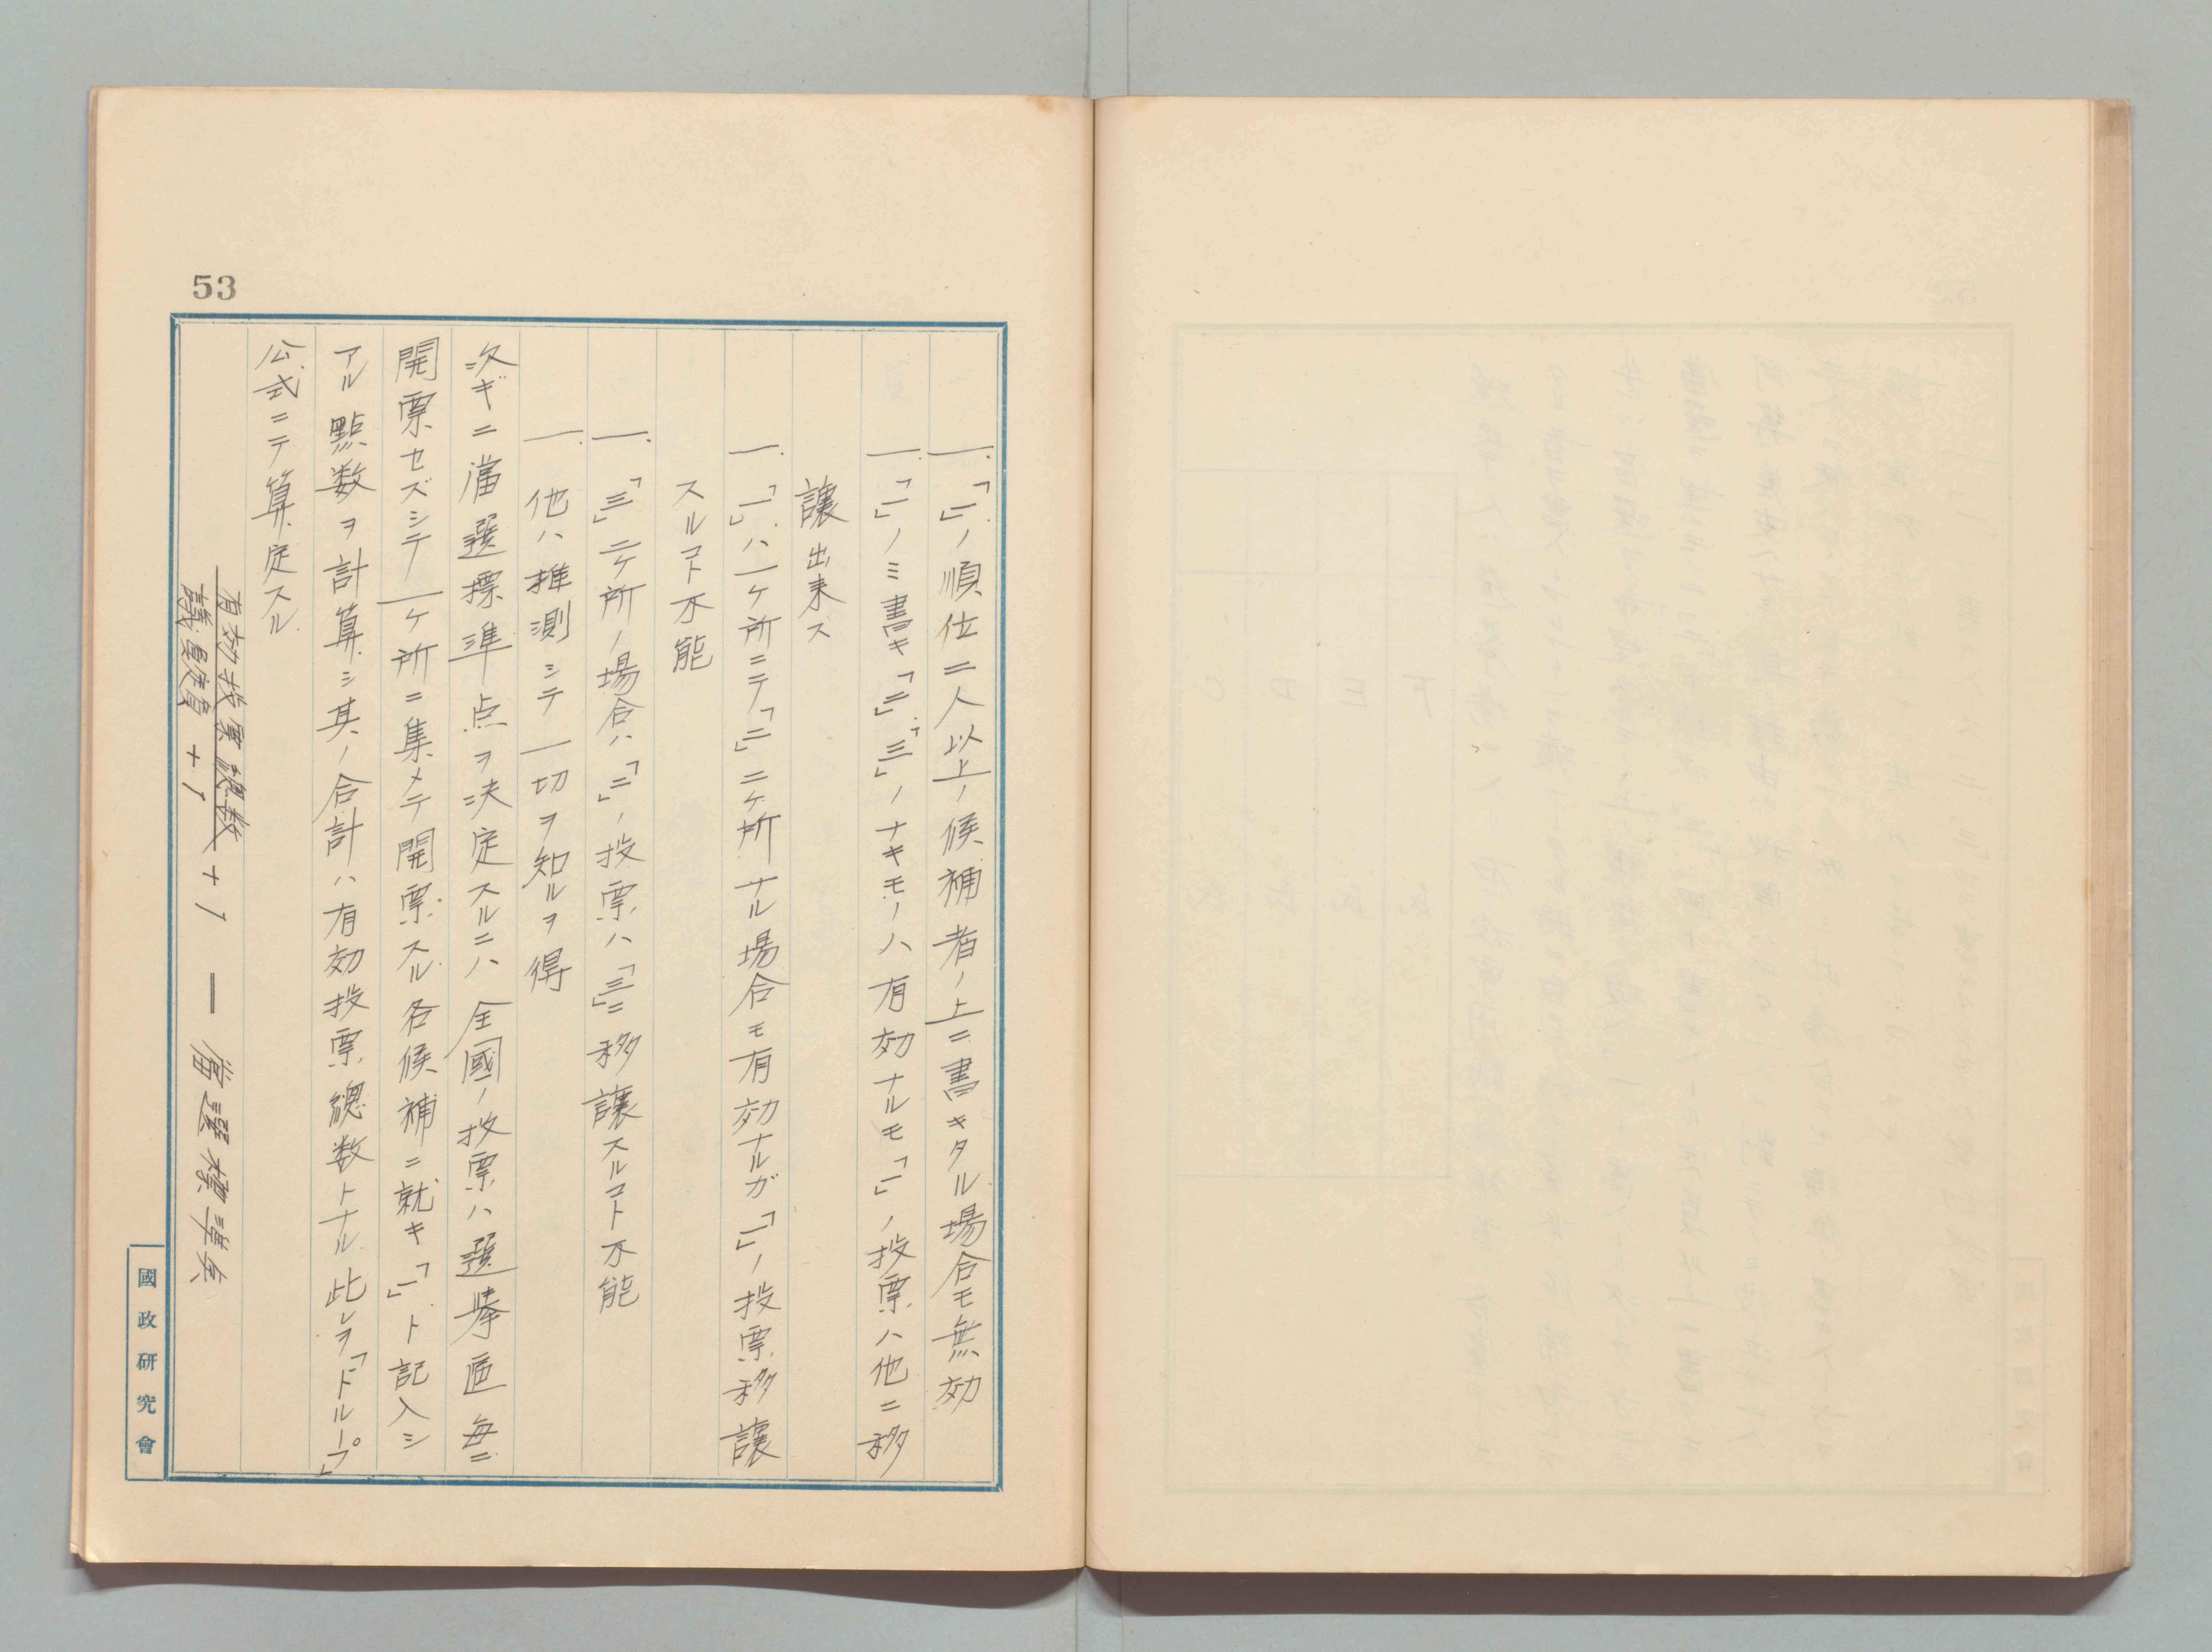 53
一.「一」ノ順位二人以上ノ候補者ノ上ニ書キタル場合モ無効
一.「一」ノミ書キ「二」「三」ノナキモノハ有効ナルモ「一」ノ投票ハ他ニ移
讓出来ス
一.「一」ハ一ケ所ニテ「二」ニケ所ナル場合モ有効ナルガ「一」ノ投票移讓
スルコト不能
一.「三」ニケ所ノ場合ハ「二」ノ投票ハ「三」ニ移讓スルコト不能
一.他ハ推測シテ一切ヲ知ルヲ得
次ギニ當選標準点ヲ決定スルニハ全國ノ投票ハ選挙區毎ニ
開票セズシテ一ケ所ニ集メテ開票スル各候補ニ就キ「一」ト記入シ
アル點数ヲ計算シ其ノ合計ハ有効投票總数トナル此レヲ「ドループ」
公式ニテ算定スル
有効投票總数
議員定員+1
+1 = 當選標準矣
國政研究會